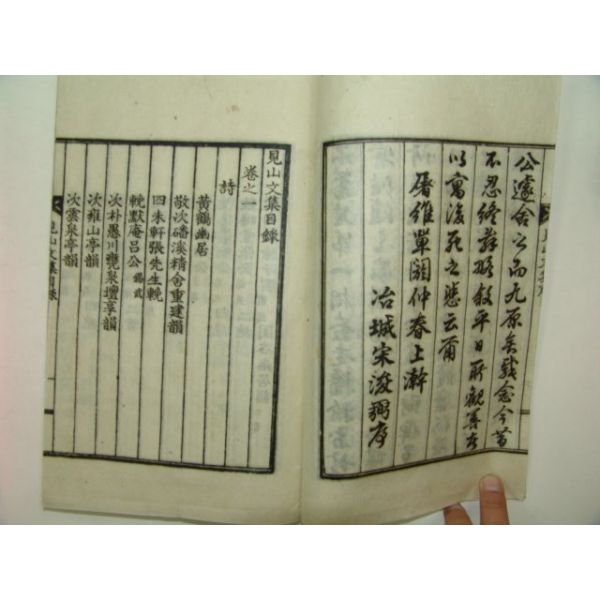 公遽舍公而九原矣戟念今昔
不忍終辭略敍平日所觀善者
以寓後死之悲云爾
屠維單閼仲春上澣
冶城宋浚弼序
見山文集目錄
卷之一
詩
黃鶴幽居
敬次磻溪精舍重建韻
四未軒張先生輓
輓默庵呂公
次朴愚川甕泉壇享韻
次雍山亭韻
次雲泉亭韻
見山文集目錄